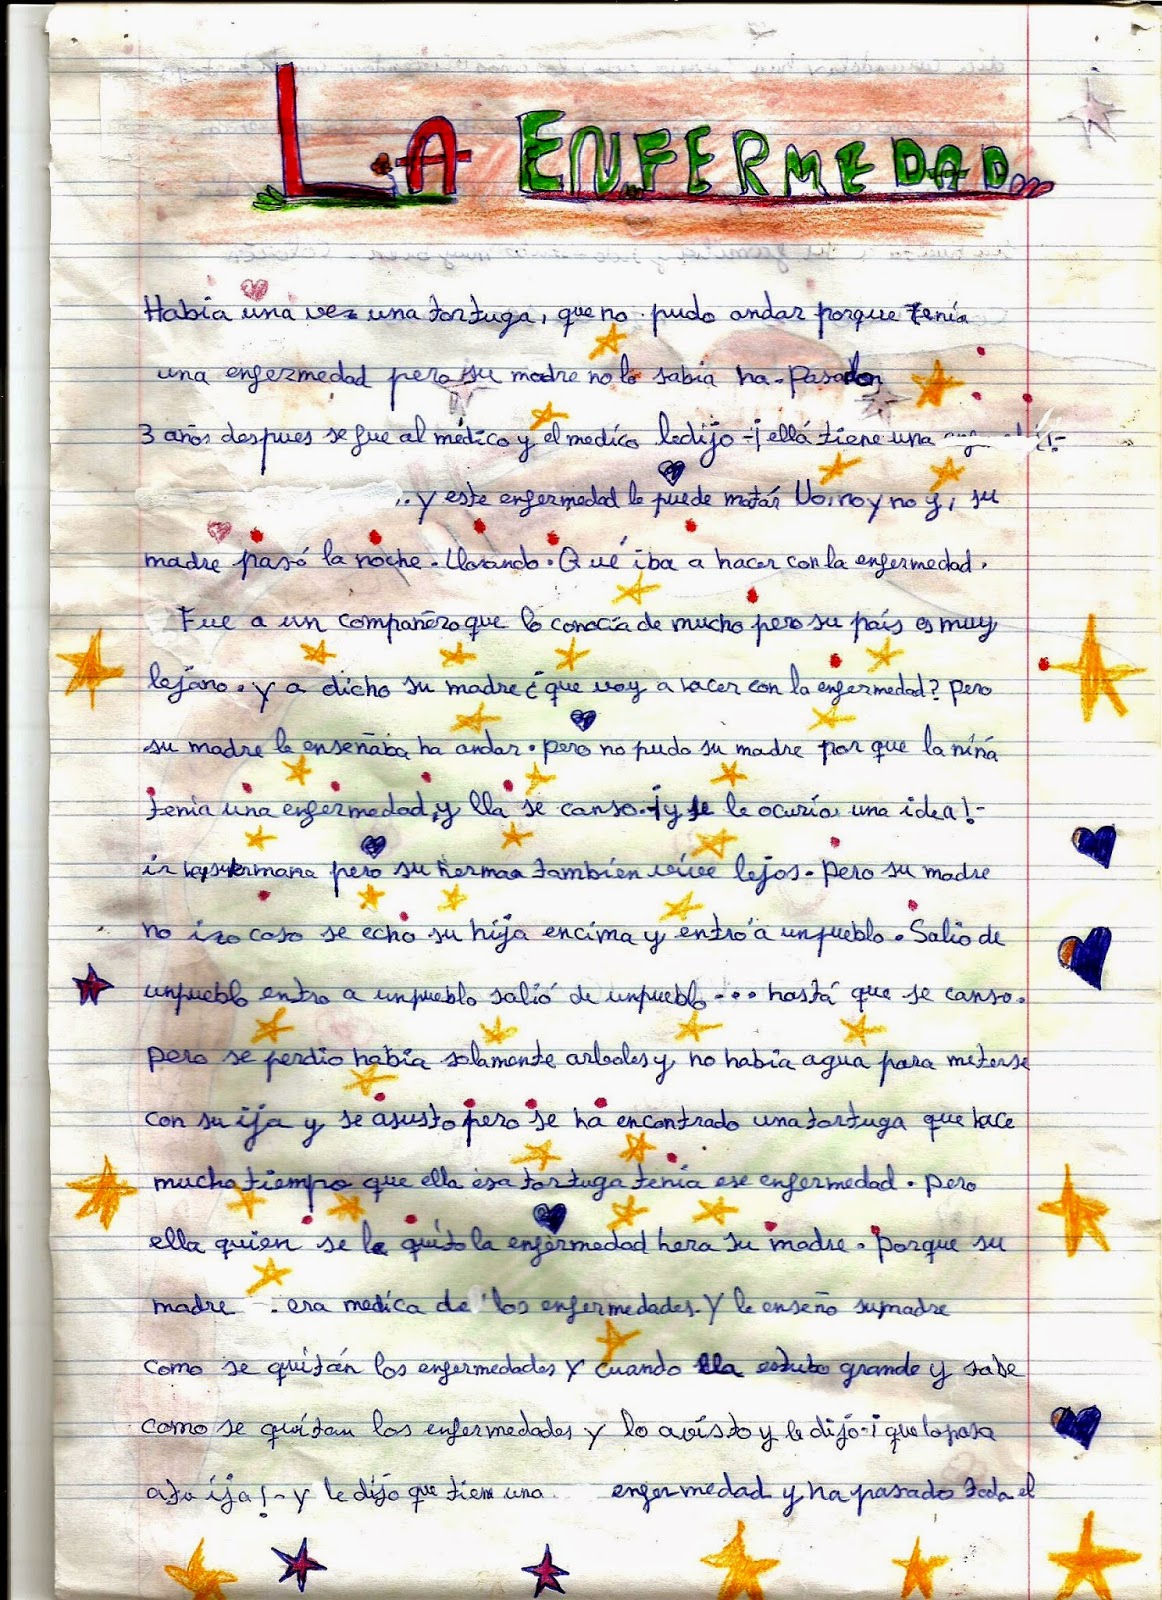 LA ENFERMEDAD
Había una vez una tortuga, que no pudo andar porque tenía
una enfermedad pero su madre no lo sabía ha. Pasaron
3 años despues se fue al médico y el medico ledijo -¡ellá tiene una !-
..y este enfermedad le puede matár No, no y no y, su
madre pasó la noche. llorando. Qué iba a hacer con la enfermedad.
Fue a un compañero que lo conocía de mucho pero su país es muy
lejano. y a dicho su madre ¿que voy a hacer con la enfermedad? pero
su madre le enseñaba ha andar. pero no pudo su madre por que la niña
tenía una enfermedad, y lla se canso. -¡y se le ocuría una idea!-
ir pero su hermana también vive lejos. Pero su madre
no izo caso se echo su hija encima y entró a unpueblo. Salio de
unpueblo entro a unpueblo salió de unpueblo... hastá que se canso.
pero se perdio había solamente arboles y no había agua para meterse
con su ija y se asusto pero se ha encontrado una tortuga que hace
mucho tiempo que ella esa tortuga tenía ese enfermedad. pero
ella quien se la quito la enfermedad hera su madre. porque su
madre . era medica de los enfermedades. Y le enseño sumadre
como se quitán los enfermedades y cuando lla estubo grande y sabe
como se quitan los enfermedades y lo avisto y le dijó-¡que lopasa
atu ija!- y le dijo que tiene una enfermedad y ha pasado toda el